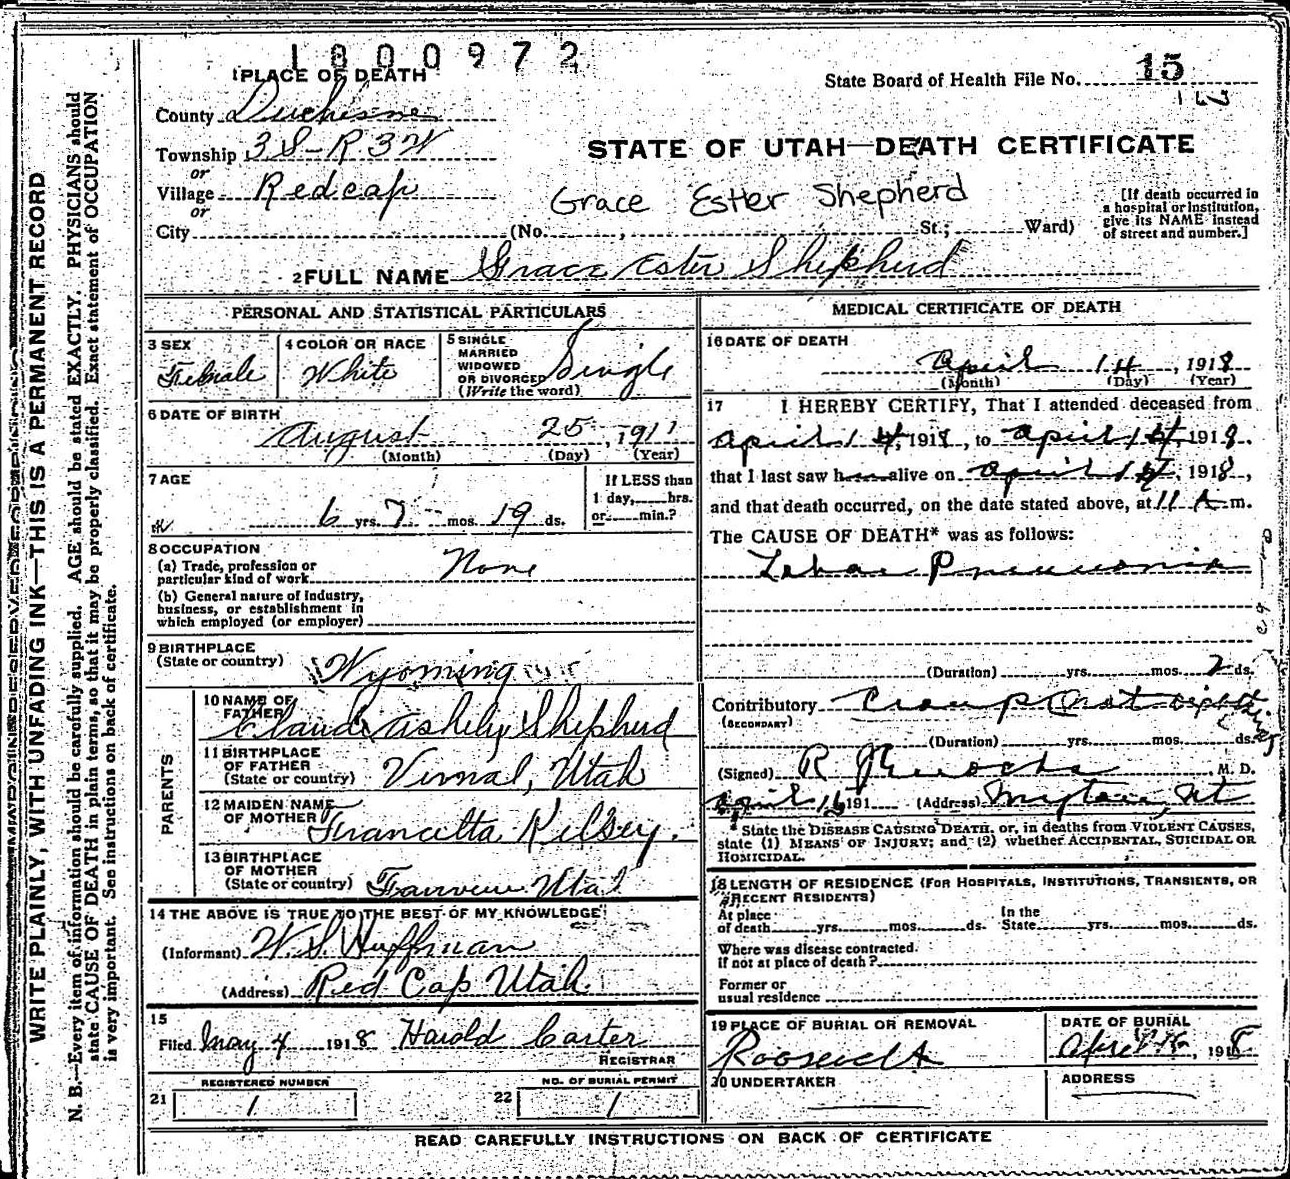 1800972
1 PLACE OF DEATH
State Board of Health File No. 15
County Duchesne
Township 3 S - R 3 W
or
Village Redcap
or
City (No. , St.; Ward)
STATE OF UTAH—DEATH CERTIFICATE
Grace Ester Shepherd
[If death occurred in
a hospital or institution,
give its NAME instead
of street and number.]
2 FULL NAME Grace Ester Shepherd
PERSONAL AND STATISTICAL PARTICULARS
3 SEX
Female
4 COLOR OR RACE
White
5 SINGLE
MARRIED
WIDOWED
OR DIVORCED
(Write the word)
Single
6 DATE OF BIRTH
August 25, 1911
(Month) (Day) (Year)
7 AGE
6 yrs. 7 mos. 19 ds.
If LESS than
1 day, hrs.
or min.?
8 OCCUPATION
(a) Trade, profession or
particular kind of work None
(b) General nature of industry,
business, or establishment in
which employed (or employer)
9 BIRTHPLACE
(State or country) Wyoming
PARENTS
10 NAME OF
FATHER Claude Ashely Shepherd
11 BIRTHPLACE
OF FATHER
(State or country) Vernal, Utah
12 MAIDEN NAME
OF MOTHER Francetta Kelsey.
13 BIRTHPLACE
OF MOTHER
(State or country) Fairview Utah
14 THE ABOVE IS TRUE TO THE BEST OF MY KNOWLEDGE
(Informant) W. S. Huffman
(Address) Red Cap Utah
15
Filed May 4 1918 Harold Carter
REGISTRAR
REGISTERED NUMBER
21 1
NO. OF BURIAL PERMIT
22 1
MEDICAL CERTIFICATE OF DEATH
16 DATE OF DEATH
April 14, 1918
(Month) (Day) (Year)
17 I HEREBY CERTIFY, That I attended deceased from
April 14, 1918, to April 14, 1918,
that I last saw h alive on April 14, 1918,
and that death occurred, on the date stated above, at 11 A m.
The CAUSE OF DEATH* was as follows:
Lobar Pneumonia
(Duration) yrs. mos. 2 ds.
Contributory Croup (not diphtheria
(SECONDARY)
(Duration) yrs. mos. ds.
(Signed) R M. D.
April 191 (Address) Myton, Ut
* State the DISEASE CAUSING DEATH, or, in deaths from VIOLENT CAUSES,
state (1) MEANS OF INJURY; and (2) whether ACCIDENTAL, SUICIDAL OR
HOMICIDAL.
18 LENGTH OF RESIDENCE (FOR HOSPITALS, INSTITUTIONS, TRANSIENTS, OR
RECENT RESIDENTS)
At place
of death yrs. mos. ds.
In the
State yrs. mos. ds.
Where was disease contracted.
If not at place of death?
Former or
usual residence
19 PLACE OF BURIAL OR REMOVAL
Roosevelt
DATE OF BURIAL
April 1918
20 UNDERTAKER
ADDRESS
READ CAREFULLY INSTRUCTIONS ON BACK OF CERTIFICATE
WRITE PLAINLY, WITH UNFADING INK—THIS IS A PERMANENT RECORD
N. B.—Every item of information should be carefully supplied. AGE should be stated EXACTLY. PHYSICIANS should
state CAUSE OF DEATH in plain terms, so that it may be properly classified. Exact statement of OCCUPATION
is very important. See instructions on back of certificate.